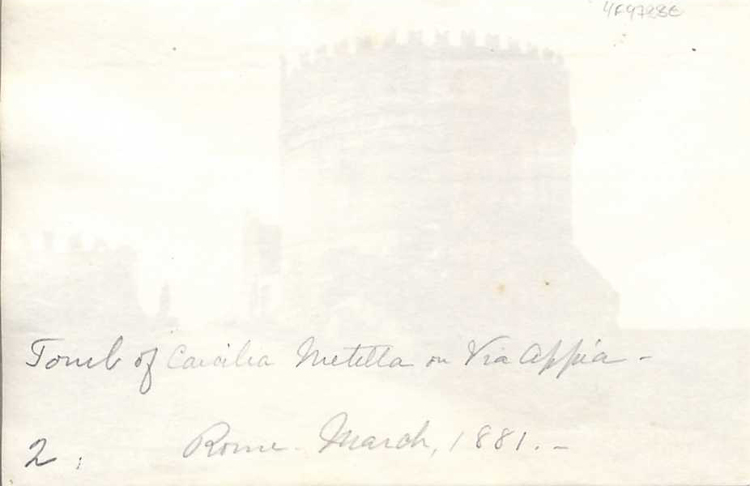 4F9728E
Tomb of Caecilia Metella on Via Appia -
2. Rome. March, 1881. -